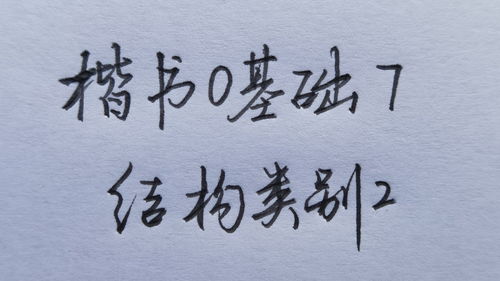 楷书0基础7
结构类别2